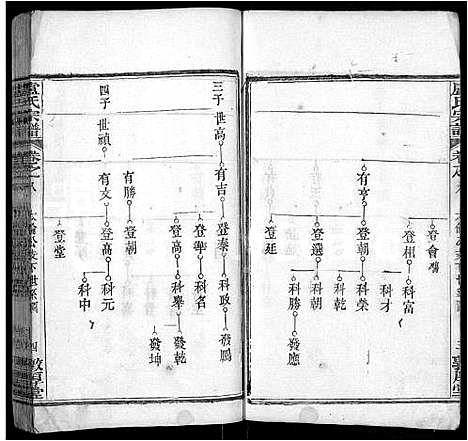 盧氏宗譜
卷之八
有亨
登會 鴻
登相 登朝 登選 登廷
科富
科才
科榮 科乾 科朝 科勝
發應
三子 世高
四子 世禎
有吉
有勝
有文
登泰 登舉 登高 登朝 登堂
科政 科名 科舉 科元 科中
發鵬
發乾
發坤
盧氏宗譜
卷之八
四
敦厚堂